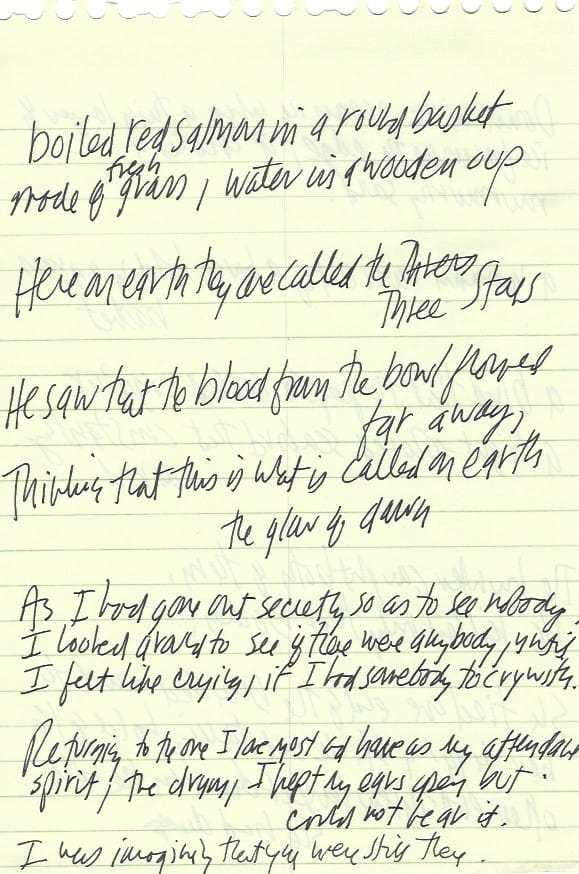 boiled red salmon in a round basket
fresh
made of grass, water in a wooden cup
Here on earth they are called the Three Stars
He saw that the blood from the bowl flowed
far away,
Thinking that this is what is called on earth
the glow of dawn
As I had gone out secretly so as to see nobody,
I looked around to see if there were anybody, until
I felt like crying, if I had somebody to cry with.
Returning to the one I love most and have as my attendant
spirit, the drum, I kept my ears open but
could not hear it.
I was imagining that you were still there.